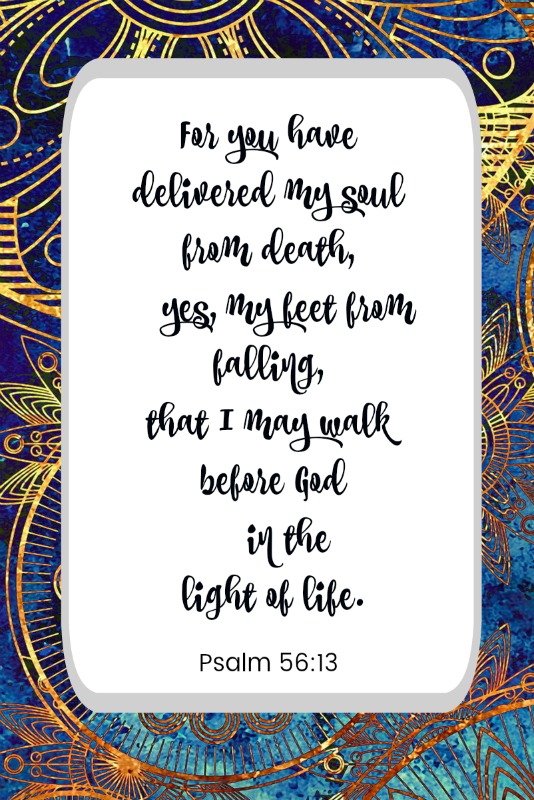 For you have
delivered my soul
from death,
yes, my feet from
falling,
that I may walk
before God
in the
light of life.
Psalm 56:13